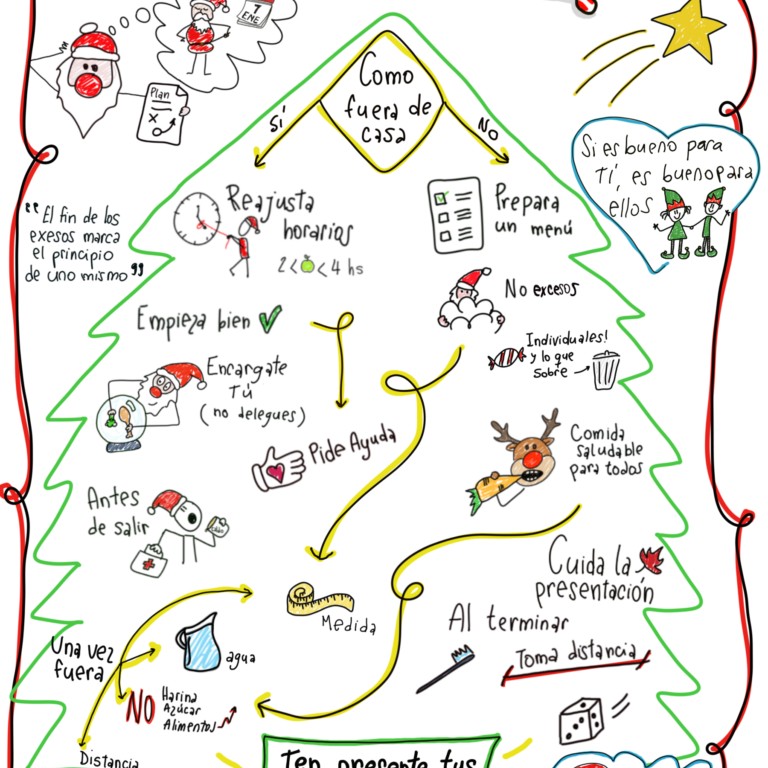 1
ENE
Plan
X
Como
fuera de
casa
SÍ
NO
Si es bueno para
Tí, es bueno para
ellos
"El fin de los
exesos marca
el principio
de uno mismo"
Reajusta
horarios
2<🍏<4 hs
Prepara
un menú
Empieza bien ✓
No excesos
Individuales!
y lo que
sobre
Encargate
TÚ
(no delegues)
Pide Ayuda
Comida
saludable
para todos
Antes
de salir
Cuida la
presentación
Medida
Al terminar
Una vez
fuera
agua
Toma distancia
NO
Harina
Azúcar
Alimentos
Distancia
Ten presente tus